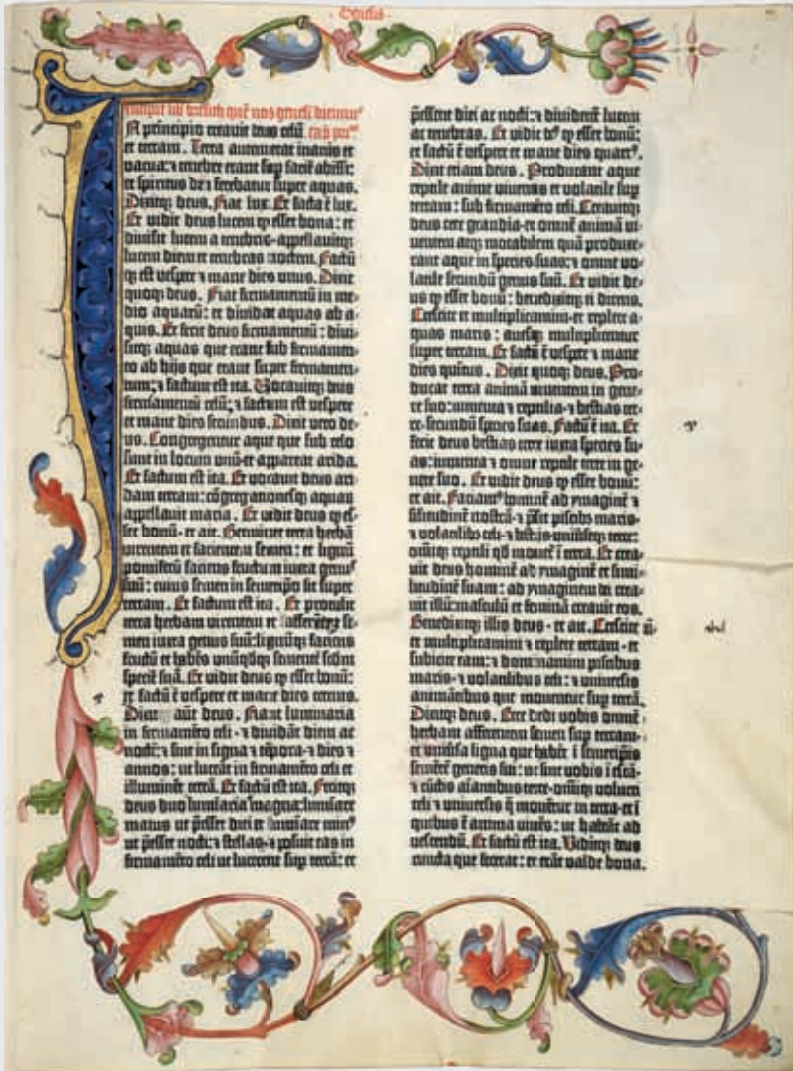 Genesis
Incipit liber bresith quē nos genesim dicimus
In principio creauit deus celū
et terram. Terra autem erat inanis et
vacua: ⁊ tenebre erant sup faciē abissi:
et spiritus dei ferebatur super aquas.
Dixitq; deus. Fiat lux. Et facta ē lux.
Et vidit deus lucem q esset bona: et
diuisit lucem a tenebris-appellauitq;
lucem diem et tenebras noctem. Factū
q; est vespere ⁊ mane dies unus. Dixit
quoq; deus. Fiat firmamentū in me-
dio aquarū: et diuidat aquas ab a-
quis. Et fecit deus firmamentū: diui-
sitq; aquas que erant sub firmamen-
to ab hijs que erant super firmamen-
tum: ⁊ factum est ita. Vocauitq; deus
firmamentū celū: ⁊ factum est vespere
et mane dies secundus. Dixit vero de-
us. Congregentur aque que sub celo
sunt in locum unū-et appareat arida.
Et factum est ita. Et vocauit deus ari-
dam terram: cōgregationesq; aquas
appellauit maria. Et vidit deus q es-
set bonū-et ait. Germinet terra herbā
virentem et facientem semen: et lignū
pomiferū faciens fructum iuxta genus
suū: cuius semen in semetipso sit super
terram. Et factum est ita. Et protulit
terra herbam virentem et
men iuxta genus suū: lignūq; faciens
fructū et habēs unūqdq; sementē scdm
speciē suā. Et vidit deus q esset bonū:
et factū ē vespere et mane dies tercius.
Dixit autē deus. Fiant luminaria
in firmamēto celi-⁊ diuidāt diem ac
noctē: ⁊ sint in signa ⁊ tēpora-⁊ dies ⁊
annos: ut luceāt in firmamēto celi et
illuminēt terrā. Et factū est ita. Fecitq;
deus duo luminaria magna: luminare
maius ut pesset diei et luminare minus
ut pesset nocti: ⁊ stellas-⁊ posuit eas in
firmamēto celi ut lucerent sup terrā: et
pessent diei ac nocti: ⁊ diuiderēt lucem
ac tenebras. Et vidit deus q esset bonū:
et factū ē vespere et mane dies quartus.
Dixit etiam deus. Producant aque
reptile anime viuentis et volatile sup
terram: sub firmamēto celi. Creauitq;
deus cete grandia-et omnē animā vi-
uentem atq; motabilem quā produxe-
rant aque in species suas: ⁊ omne vo-
latile secundū genus suū. Et vidit de-
us q esset bonū: benedixitq; ei dicens.
Crescite et multiplicamini-et replete a-
quas maris: auesq; multiplicentur
super terram. Et factū ē vespere ⁊ mane
dies quintus. Dixit quoq; deus. Pro-
ducat terra animā viuentem in gene-
re suo: iumenta ⁊ reptilia-⁊ bestias ter-
re-secundū species suas. Factū ē ita. Et
fecit deus bestias terre iuxta species su-
as: iumenta ⁊ omne reptile terre in ge-
nere suo. Et vidit deus q esset bonū:
et ait. Faciamus hominē ad ymaginē ⁊
similitudinē nostrā-⁊ psit piscibs maris-
⁊ volatilibs celi-⁊ bestijs-uniuseq; terre:
omiq; reptili qd mouet i terra. Et crea-
uit deus hominē ad ymaginē et simi-
litudinē suam: ad ymaginem dei crea-
uit illū: masculū et feminā creauit eos.
Benedixitq; illis deus-et ait. Crescite
et multiplicamini ⁊ replete terram-et
subicite eam: ⁊ dominamini piscibus
maris-⁊ volatilibus celi: ⁊ uniuersis
animātibus que mouentur sup terrā.
Dixitq; deus. Ecce dedi vobis omnē
herbam afferentem semen sup terram-
et uniūsa ligna que habēt i semetipsis
sementē generis sui: ut sint vobis i escā-
⁊ cūctis aīantibus terre-omiq; volucri
celi ⁊ uniuersis q mouētur in terra-et i
quibus ē anima viuēs: ut habeāt ad
vescendū. Et factū est ita. Viditq; deus
cuncta que fecerat: et erāt valde bona.